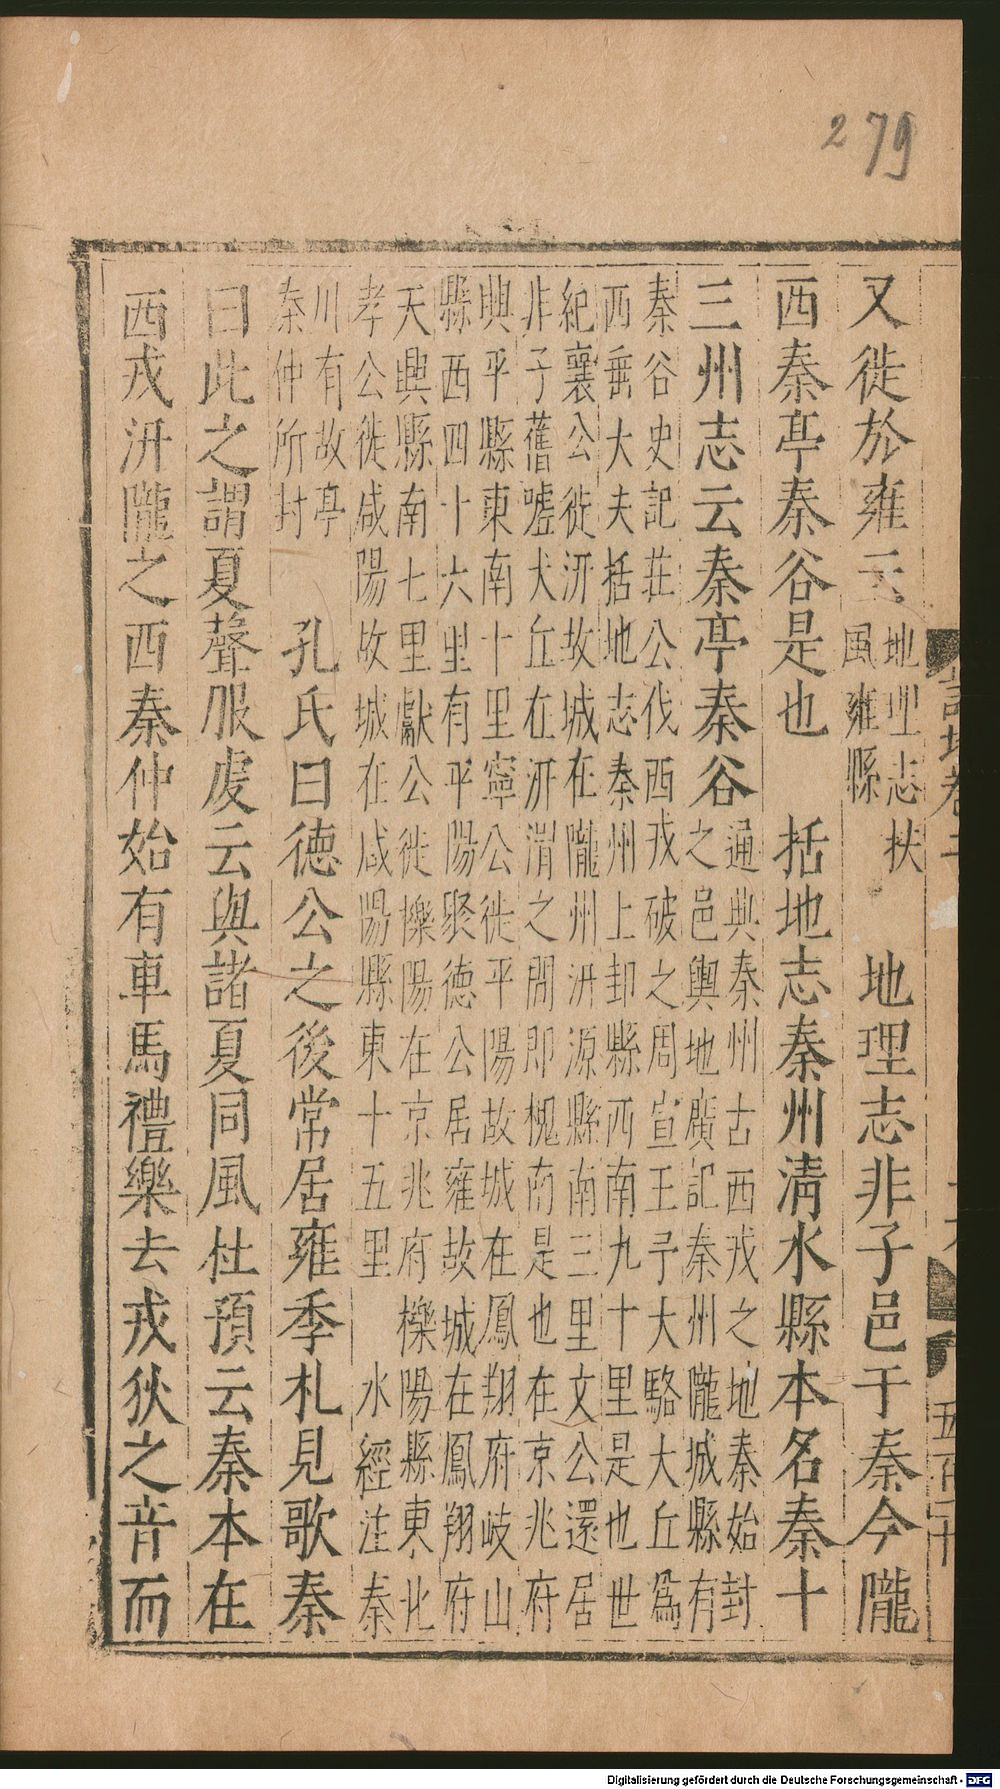 2 79
又徙於雍云
地理志扶
風雍縣
地理志非子邑于秦今隴
西秦亭秦谷是也　括地志秦州清水縣本名秦十
三州志云秦亭秦谷
通典秦州古西戎之地秦始封
之邑輿地廣記秦州隴城縣有
秦谷史記莊公伐西戎破之周宣王予大駱大丘爲
西垂大夫括地志秦州上邽縣西南九十里是也世
紀襄公徙汧故城在隴州汧源縣南三里文公還居
非子舊墟犬丘在汧渭之間即槐是也在京兆府
興平縣東南十里寧公徙平陽故城在鳳翔府岐山
縣西四十六里有平陽聚德公居雍故城在鳳翔府
天興縣南七里獻公徙櫟陽在京兆府櫟陽縣東北
孝公徙咸陽故城在咸陽縣東十五里　水經注秦
川有故亭
秦仲所封
孔氏曰德公之後常居雍季札見歌秦
曰此之謂夏聲服虔云與諸夏同風杜預云秦本在
西戎汧隴之西秦仲始有車馬禮樂去戎狄之音而
Digitalisierung gefördert durch die Deutsche Forschungsgemeinschaft - DFG